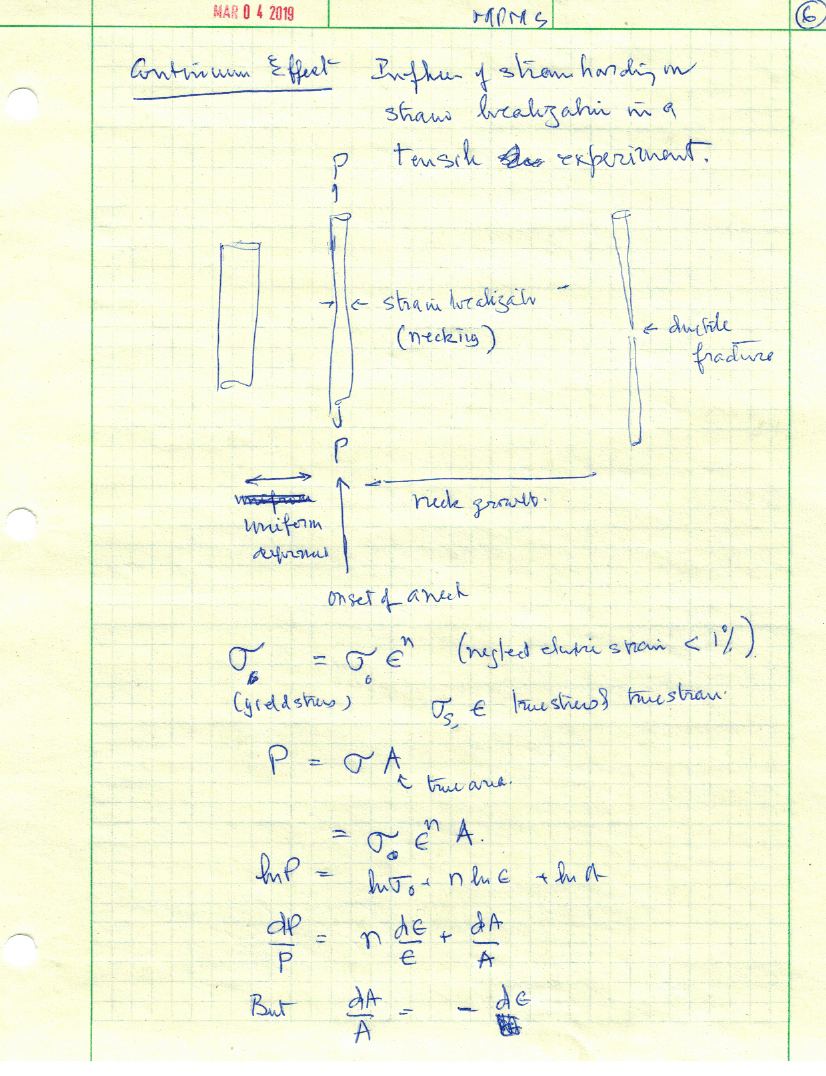 MAR 0 4 2019
MPMS
6
Continuum Effect Influen of strain harding on
strain localization in a
tensile experiment.
P
← strain localizatn
(necking)
← ductile
fracture
P
uniform
deformat
neck growth.
onset of a neck
σ = σ₀ ϵⁿ (neglect elastic strain < 1%)
(yield stress) σs, ϵ true stress & true strain.
P = σ A
true area.
= σ₀ ϵⁿ A.
ln P = ln σ₀ + n ln ϵ + ln A
dP/P = n dϵ/ϵ + dA/A
But dA/A = - dϵ